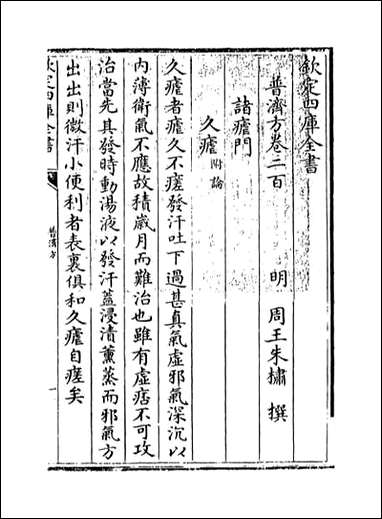 欽定四庫全書
普濟方卷二百
明 周王朱橚 撰
諸瘧門
久瘧附論
久瘧者瘧久不瘥發汗吐下過甚真氣虛邪氣深沉以
内薄衛氣不應故積嵗月而難治也雖有虛痞不可攻
治當先其發時動湯液以發汗蓋浸漬薰蒸而邪氣方
出出則微汗小便利者表裏俱和久瘧自瘥矣
欽定四庫全書
普濟方
一